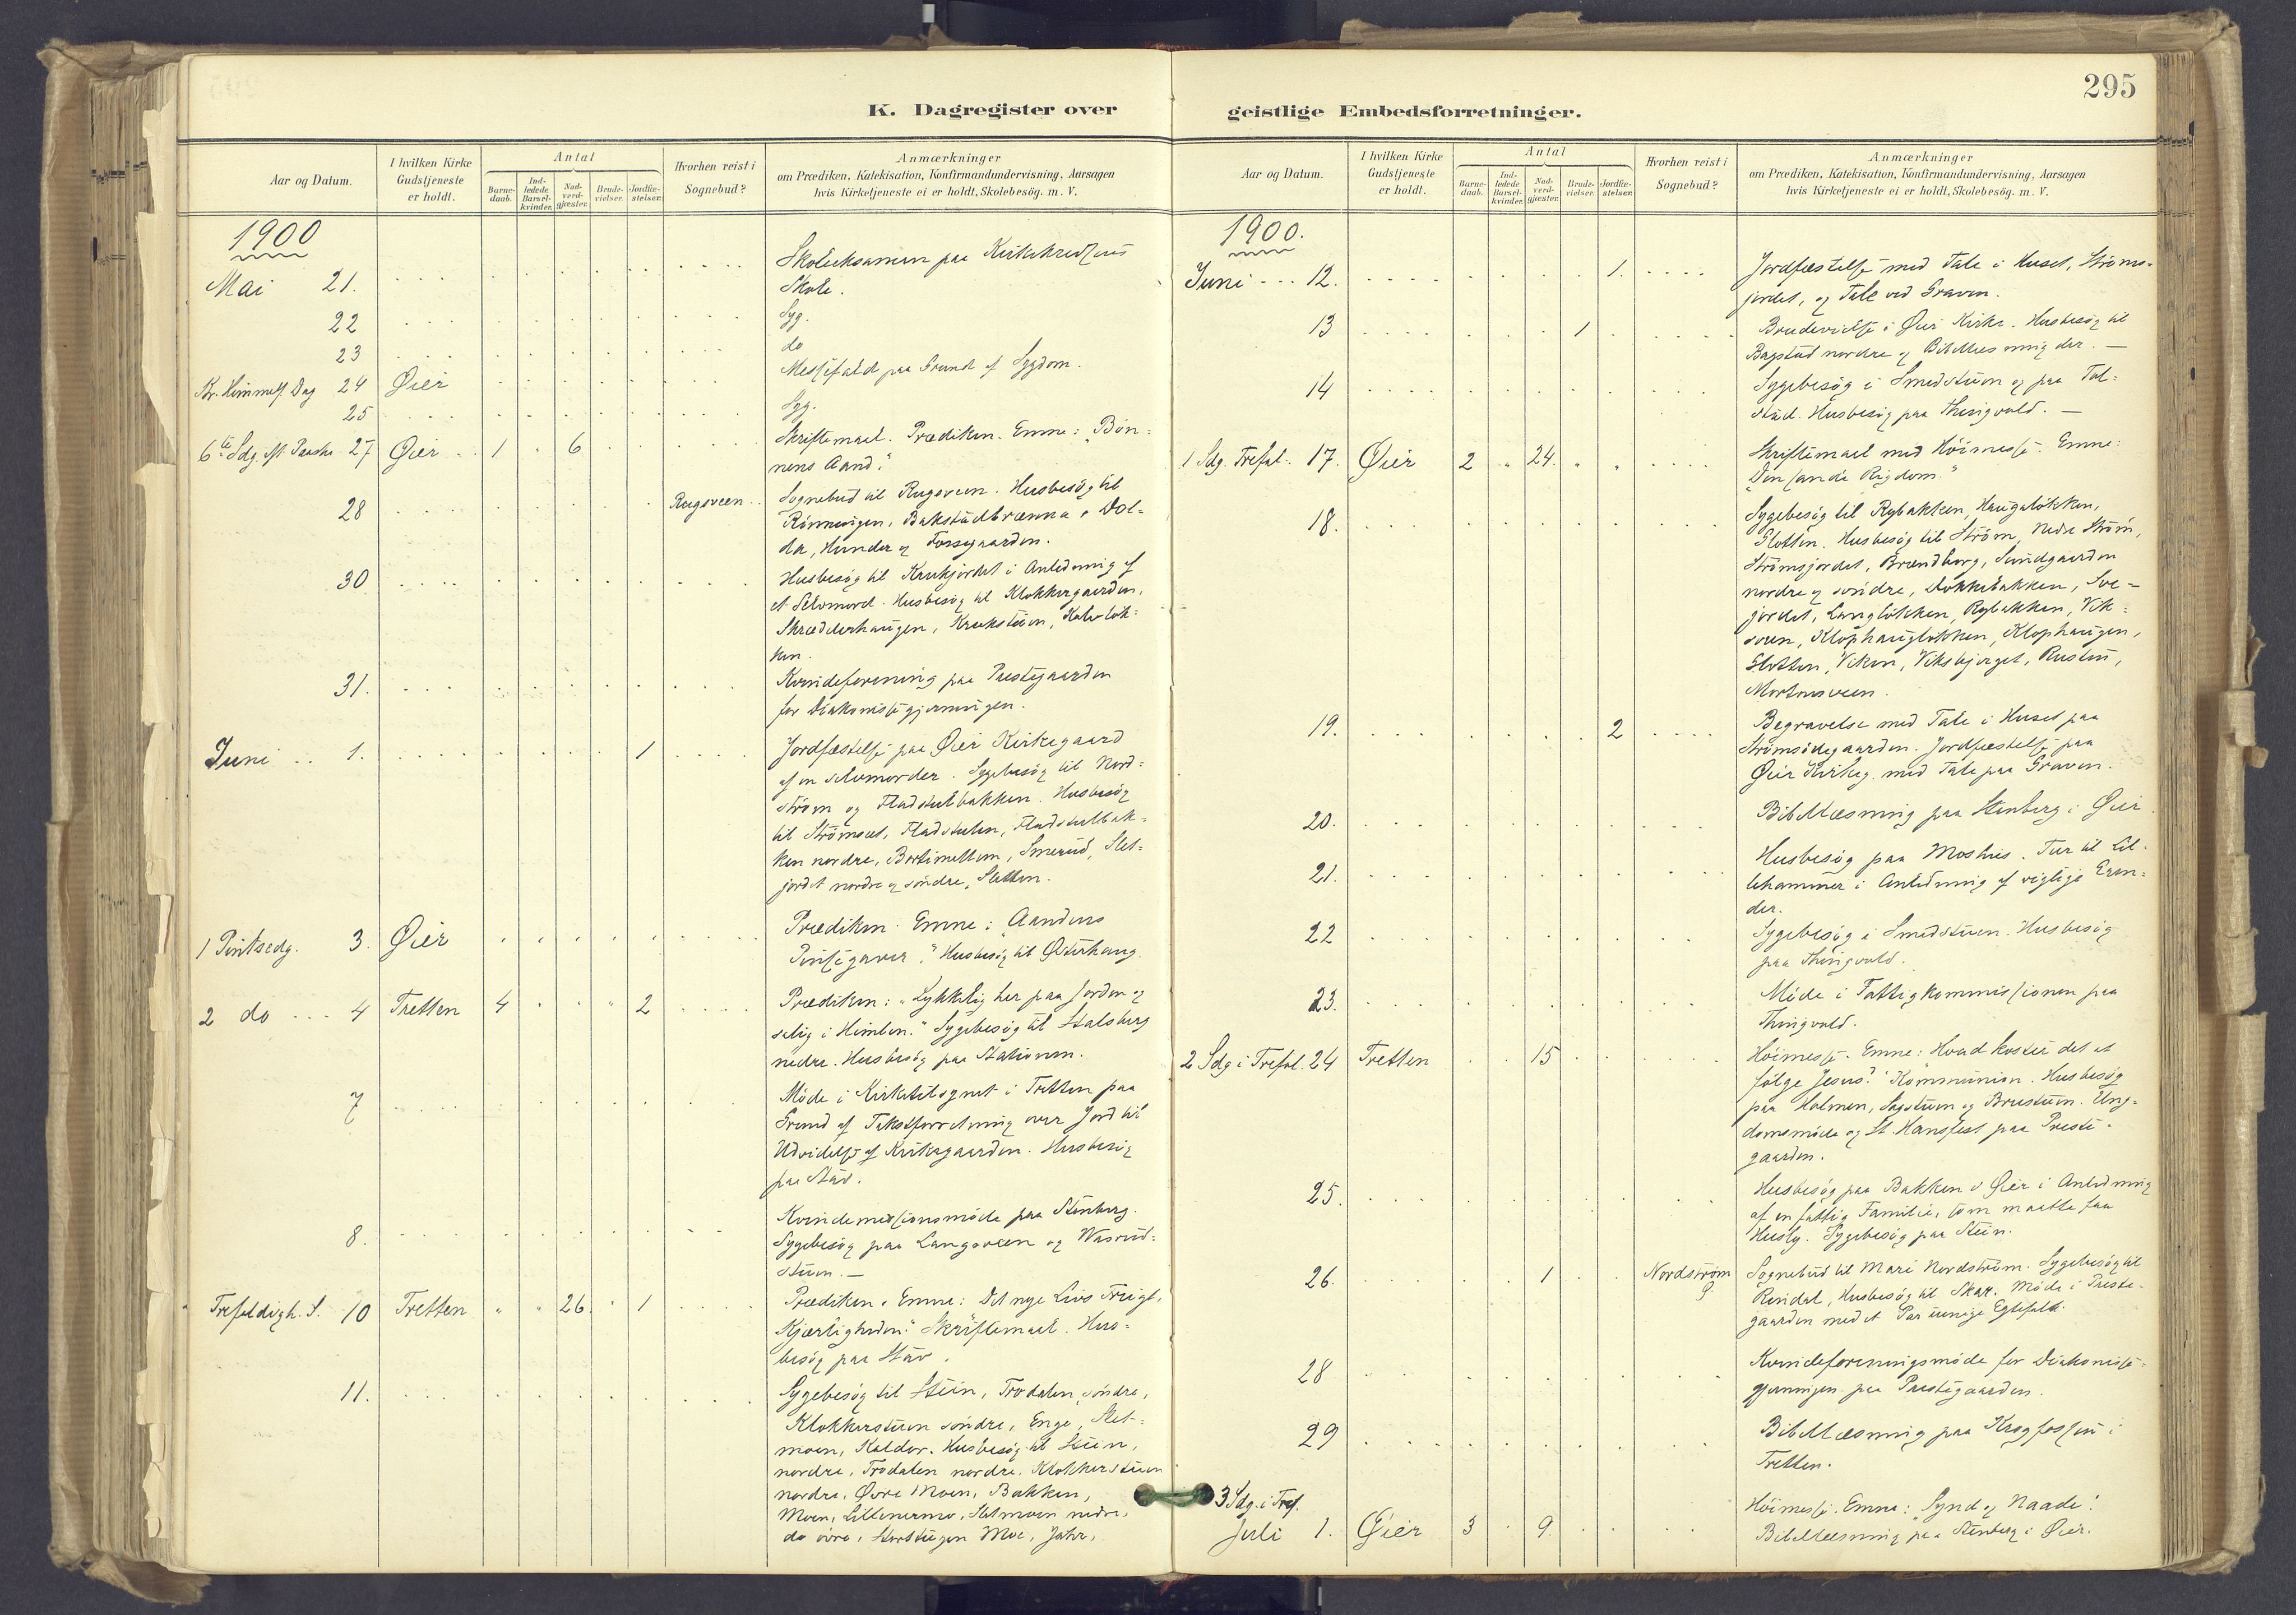 295
K. Dagregister over geistlige Embedsforretninger.
Aar og Datum.
I hvilken Kirke Gudstjeneste er holdt.
Antal
Barne-daab.
Ind-ledede Barsel-kvinder.
Nad-verd-gjæster.
Brude-vielser.
Jordfæ-stelser.
Hvorhen reist i Sognebud?
Anmærkninger
om Prædiken, Katekisation, Konfirmandundervisning, Aarsagen
hvis Kirketjeneste ei er holdt, Skolebesög. m. V.
1900
Mai 21. Skoleeksamen paa Kirkekredsens
Skole.
22 Syg.
23 do
Kr. Himmelf. Dag 24 Øier Messefald paa Grund af Sygdom.
25 Syg.
6te Sdg. eft. Paaske 27 Øier 1 " 6 Skriftemaal. Prædiken. Emne: "Bön-
nens Aand."
28 Rugsveen Sognebud til Rugsveen. Husbesög til
Rönningen, Bakstadbrænna, Dol-
da, Hunder og Fossegaarden.
30 Husbesög til Krukjordet i Anledning af
et Selvmord. Husbesög til Klokkergaarden,
Skrædderhaugen, Krukstuen, Kalvlök-
ken.
31. Kvindeforening paa Prestegaarden
for Diakonissegjerningen.
Juni 1. 1 Jordfæstelse paa Øier Kirkegaard
af en selvmorder. Sygebesög til Nord-
ström og Fladstulbakken. Husbesög
til Strömoet, Fladstulen, Fladstulbak-
ken nordre, Bortimellem, Smerud, Slet-
jordet nordre og söndre, Sletten.
1 Pintsedg. 3. Øier Prædiken. Emne: "Aandens
Pinsegaver." Husbesög til Østerhaug.
2 do 4 Tretten 4 2 Prædiken: "Lykkelig her paa Jorden og
salig i Himlen." Sygebesög til Stalsberg
nedre. Husbesög paa Stationen.
7 Möde i Kirketilsynet i Tretten paa
Grund af Takstforretning over Jord til
Udvidelse af Kirkegaarden. Husbesög
paa Stav.
8. Kvindemissionsmöde paa Stenberg.
Sygebesög paa Langsveen og Wasrud-
stuen. —
Trefoldigh. S. 10 Tretten " " 26 " 1 Prædiken. Emne: Det nye Livs Frugt,
Kjærligheden." Skriftemaal. Hus-
besög paa Stav.
11. Sygebesög til Stuen, Trodalen söndre,
Klokkerstuen söndre, Enge, Slet-
moen, Kaldor. Husbesög til Stuen,
nordre, Trodalen nordre, Klokkerstuen
nordre, Øvre Moen, Bakken,
Moen, Lillenermo, Sletmoen nedre,
do övre, Storstugen Moe, Jahr,
1900.
Juni 12. 1. Jordfæstelse med Tale i Huset, Ströms-
jordet, og Tale ved Graven.
13 1 Brudevielse i Øier Kirke. Husbesög til
Bagstad nordre og Bibellæsning der. —
14 Sygebesög i Smedstuen og paa Tol-
stad. Husbesög paa Thingvold. —
1 Sdg. Trefol. 17. Øier 2 " 24. " " Skriftemaal med Höimesse. Emne:
"Den sande Rigdom."
18. Sygebesög til Rybakken, Haugalökken,
Slotten. Husbesög til Ström, Nedre Ström,
Strömsjordet, Brandborg, Sundgaarden
nordre og söndre, Dokkebakken, Sve-
jordet, Langlökken, Rybakken, Vik-
sveen, Klophauglökken, Klophaugen,
Slotten, Viken, Viksbjerget, Rusten,
Mortensveen.
19. 2 Begravelse med Tale i Huset paa
Strömsödegaarden. Jordfæstelse paa
Øier Kirkeg. med Tale paa Graven.
20. Bibellæsning paa Stenberg i Øier.
21. Husbesög paa Moshus. Tur til Lil-
lehammer i Anledning af vigtige Eren-
der.
22 Sygebesög i Smedstuen. Husbesög
paa Thingvold.
23. Möde i Fattigkommissionen paa
Thingvold.
2 Sdg i Trefol. 24 Tretten 15 Höimesse. Emne: Hvad koster det at
fölge Jesus? Kommunion. Husbesög
paa Holmen, Sagstuen og Brustuen. Ung-
domsmöde og St. Hansfest paa Preste-
gaarden.
25. Husbesög paa Bakken i Øier i Anledning
af en fattig Familie, som maatte faa
Husly. Sygebesög paa Stuen.
26. 1 Nordström Sognebud til Mari Nordström. Sygebesög til
Rindal, Husbesög til Skar. Möde i Preste-
gaarden med et Par uenige Egtefolk.
28 Kvindeforeningsmöde for Diakonisse-
gjerningen paa Prestegaarden.
29 Bibellæsning paa Krogfossen i
Tretten.
3 Sdg. i Tref.
Juli 1. Øier 3 9. Höimesse. Emne: "Synd og Naade".
Bibellæsning paa Stenberg i Øier.